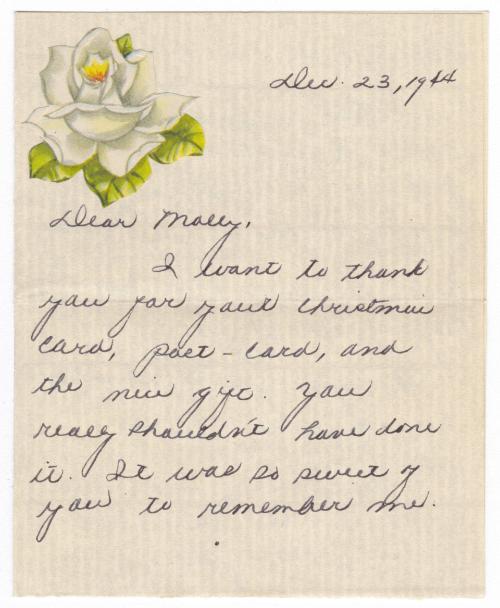 Dec. 23, 1944
Dear Molly,
I want to thank
you for your Christmas
card, post-card, and
the nice gift. You
really shouldn't have done
it. It was so sweet of
you to remember me.